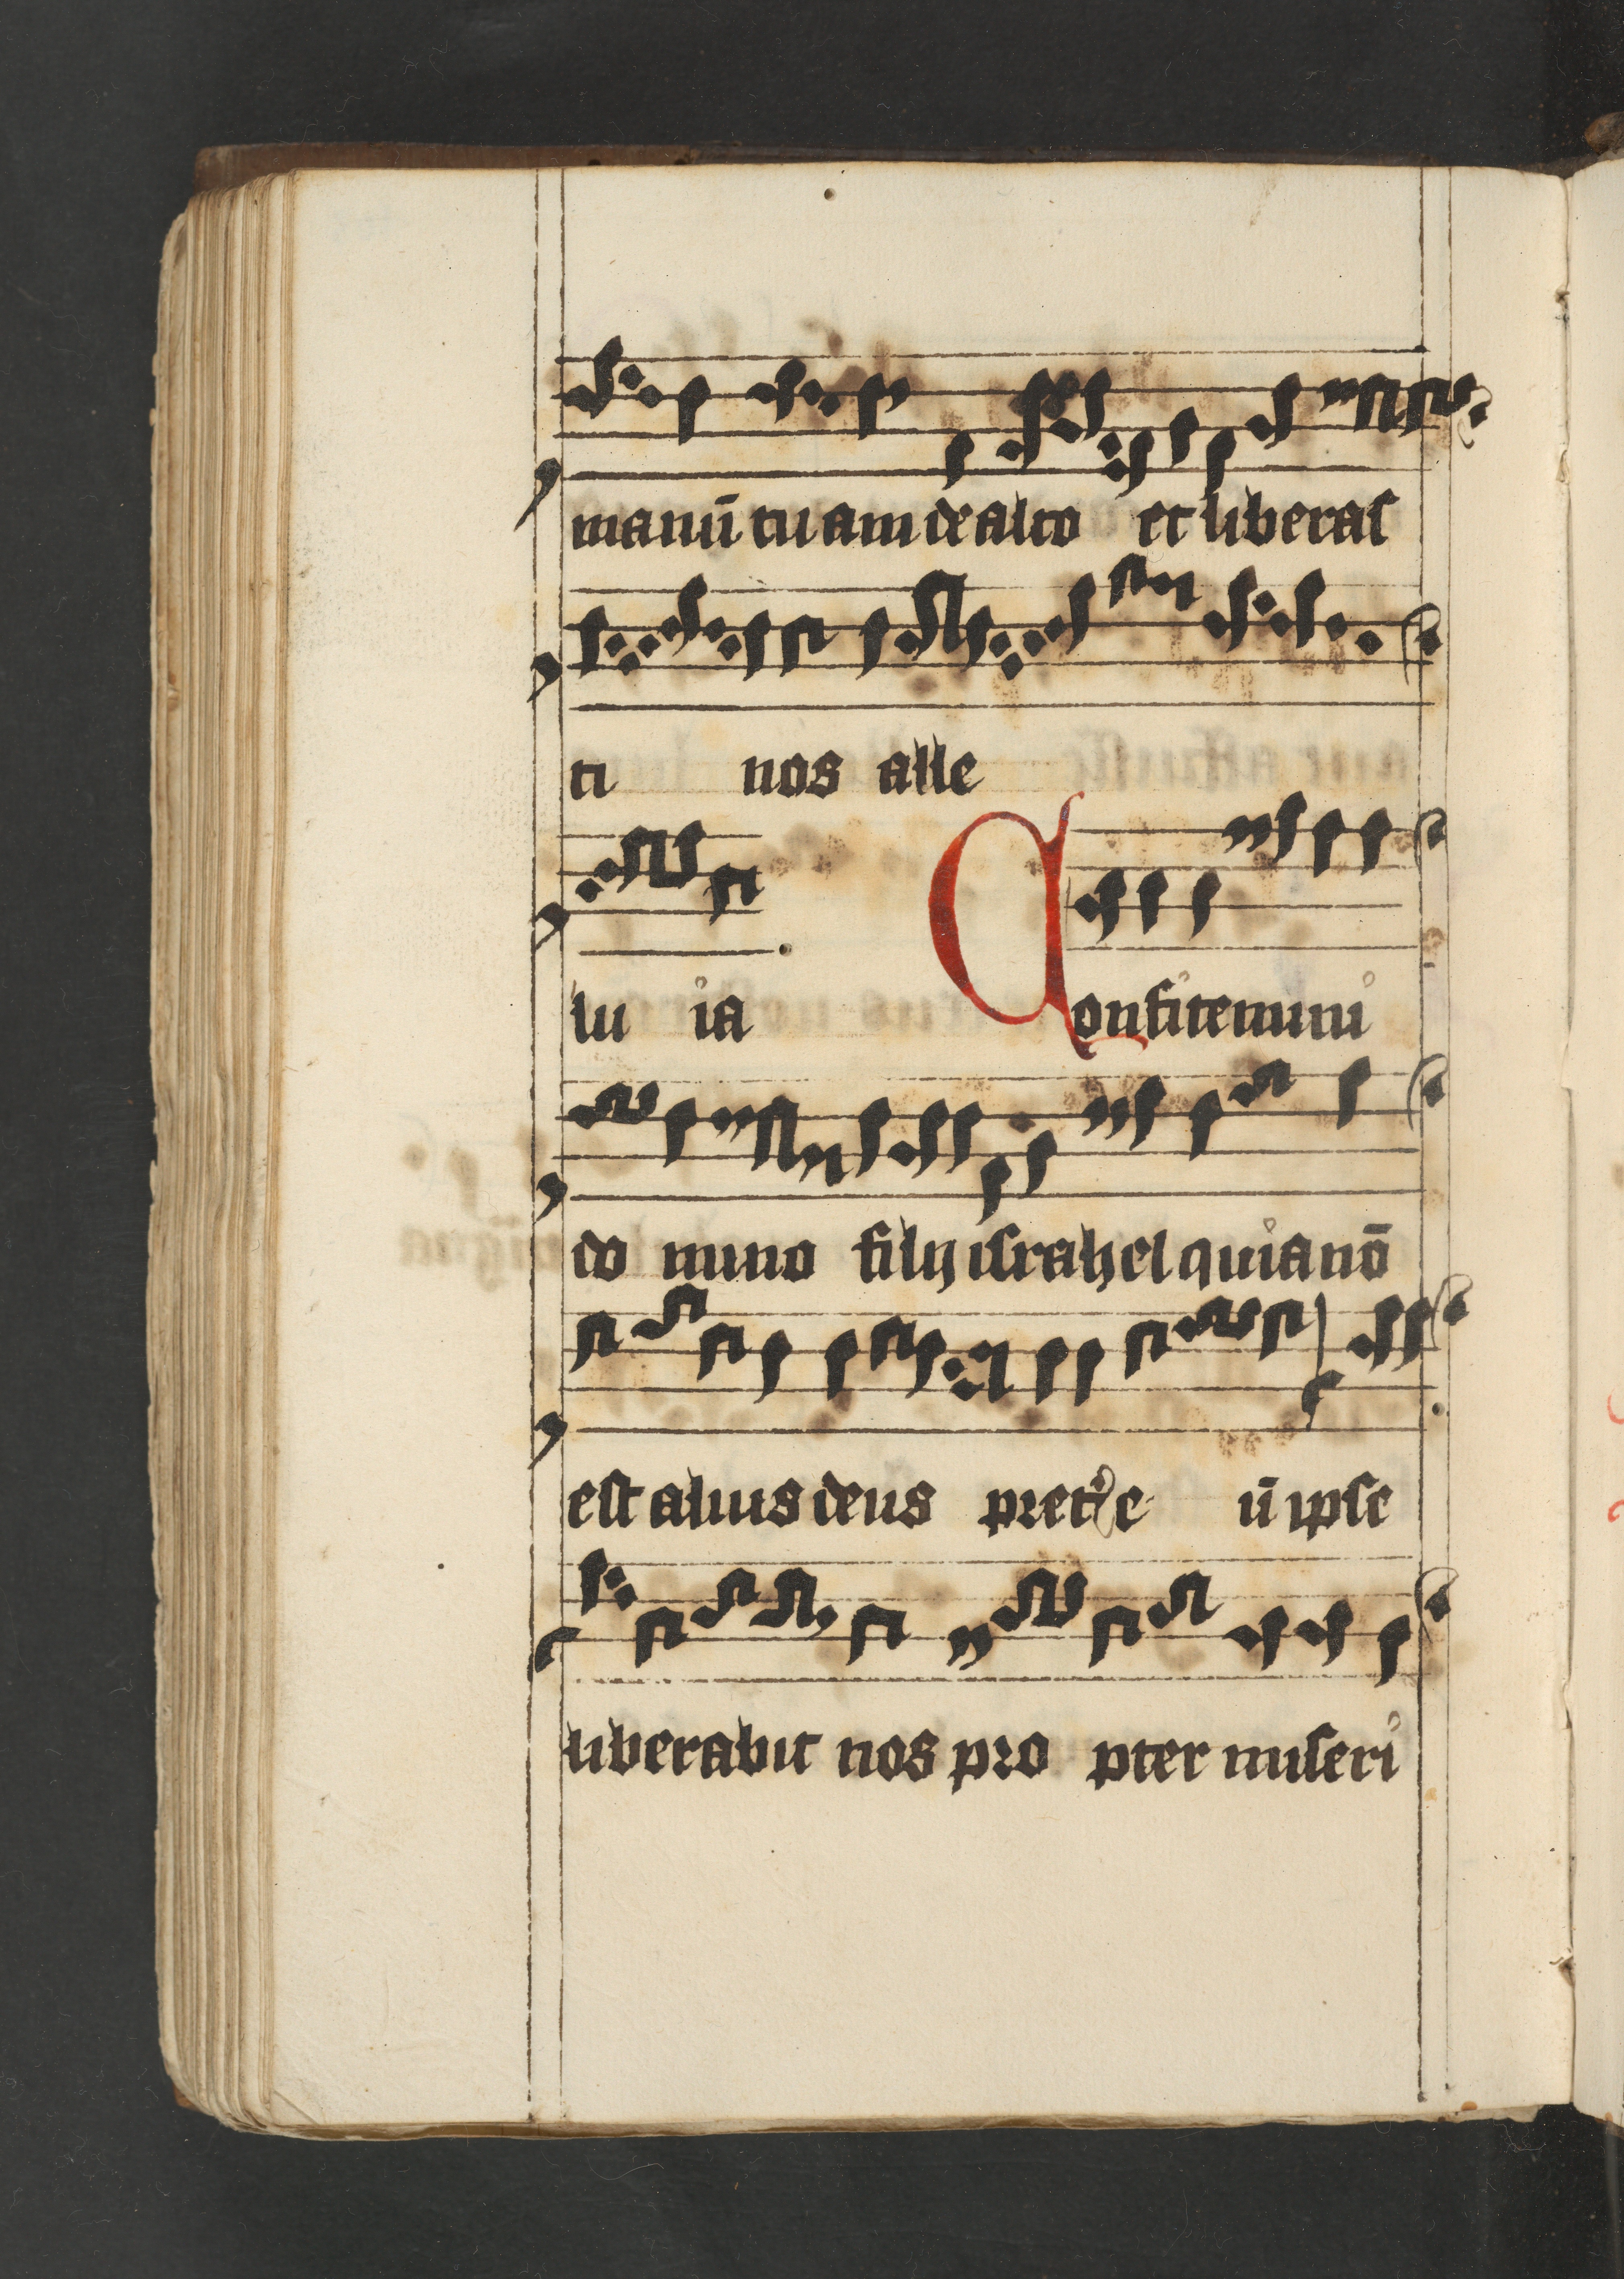 manū tuam de alto et liberas
ti nos alle
lu ia Confitemini
do mino filij israhel quia nō
est alius deus preter e ū ipse
liberabit nos pro pter miseri